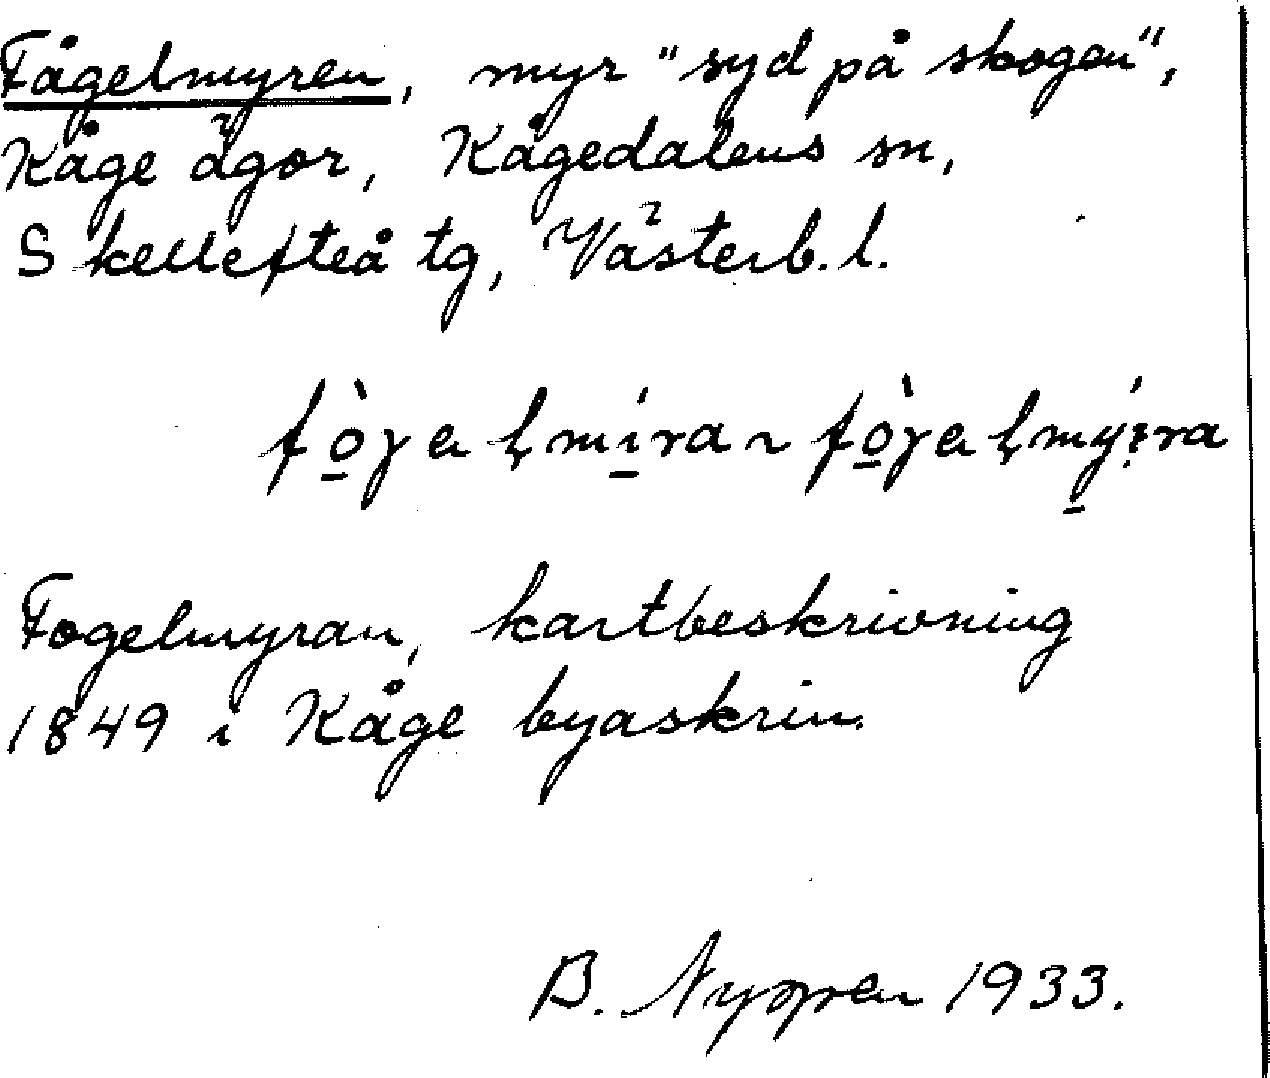 Fågelmyren, myr "syd på skogen",
Kåge ägor, Kågedalens sn,
Skellefteå tg, Västerb. l.
Fogelmyran, kartbeskrivning
1849 i Kåge byaskrin.
B. 1933.